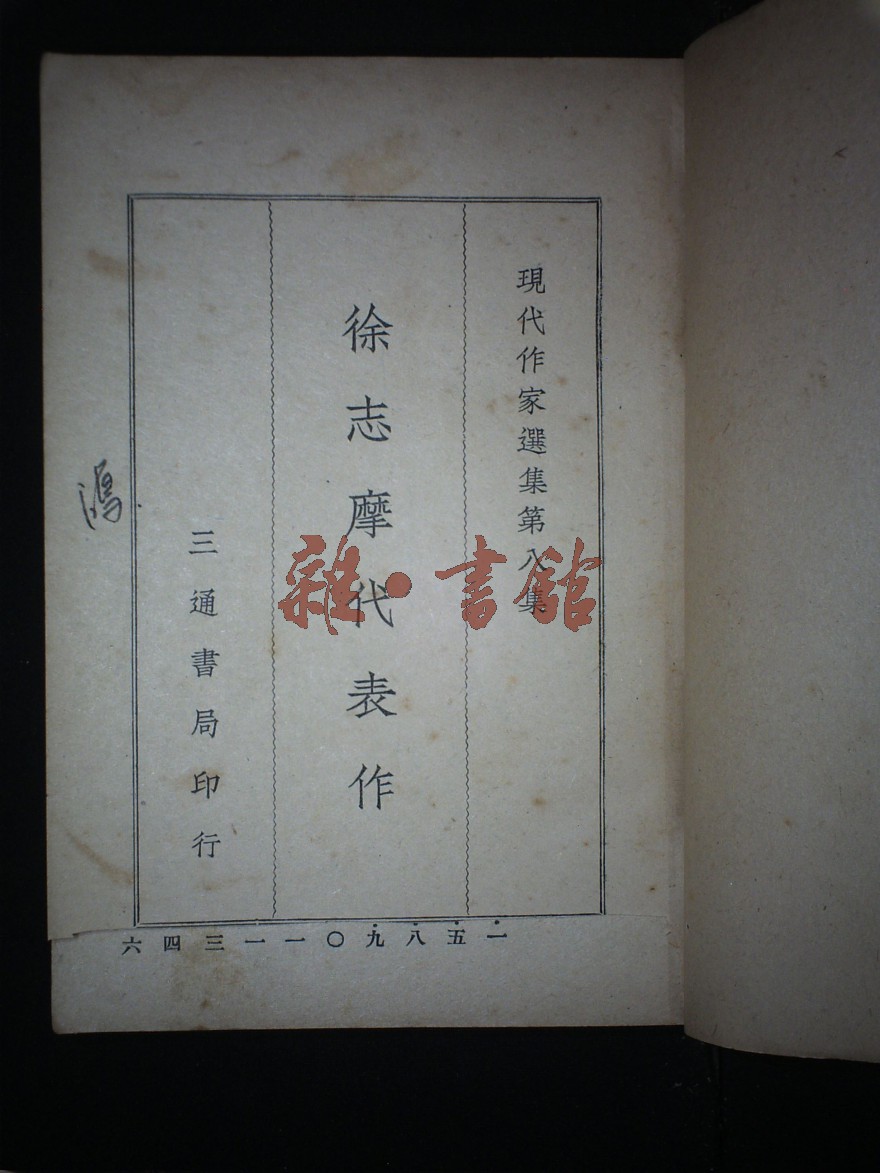 現代作家選集第八集
徐志摩代表作
三通書局印行
雜·書館
一五八九〇一一三四六